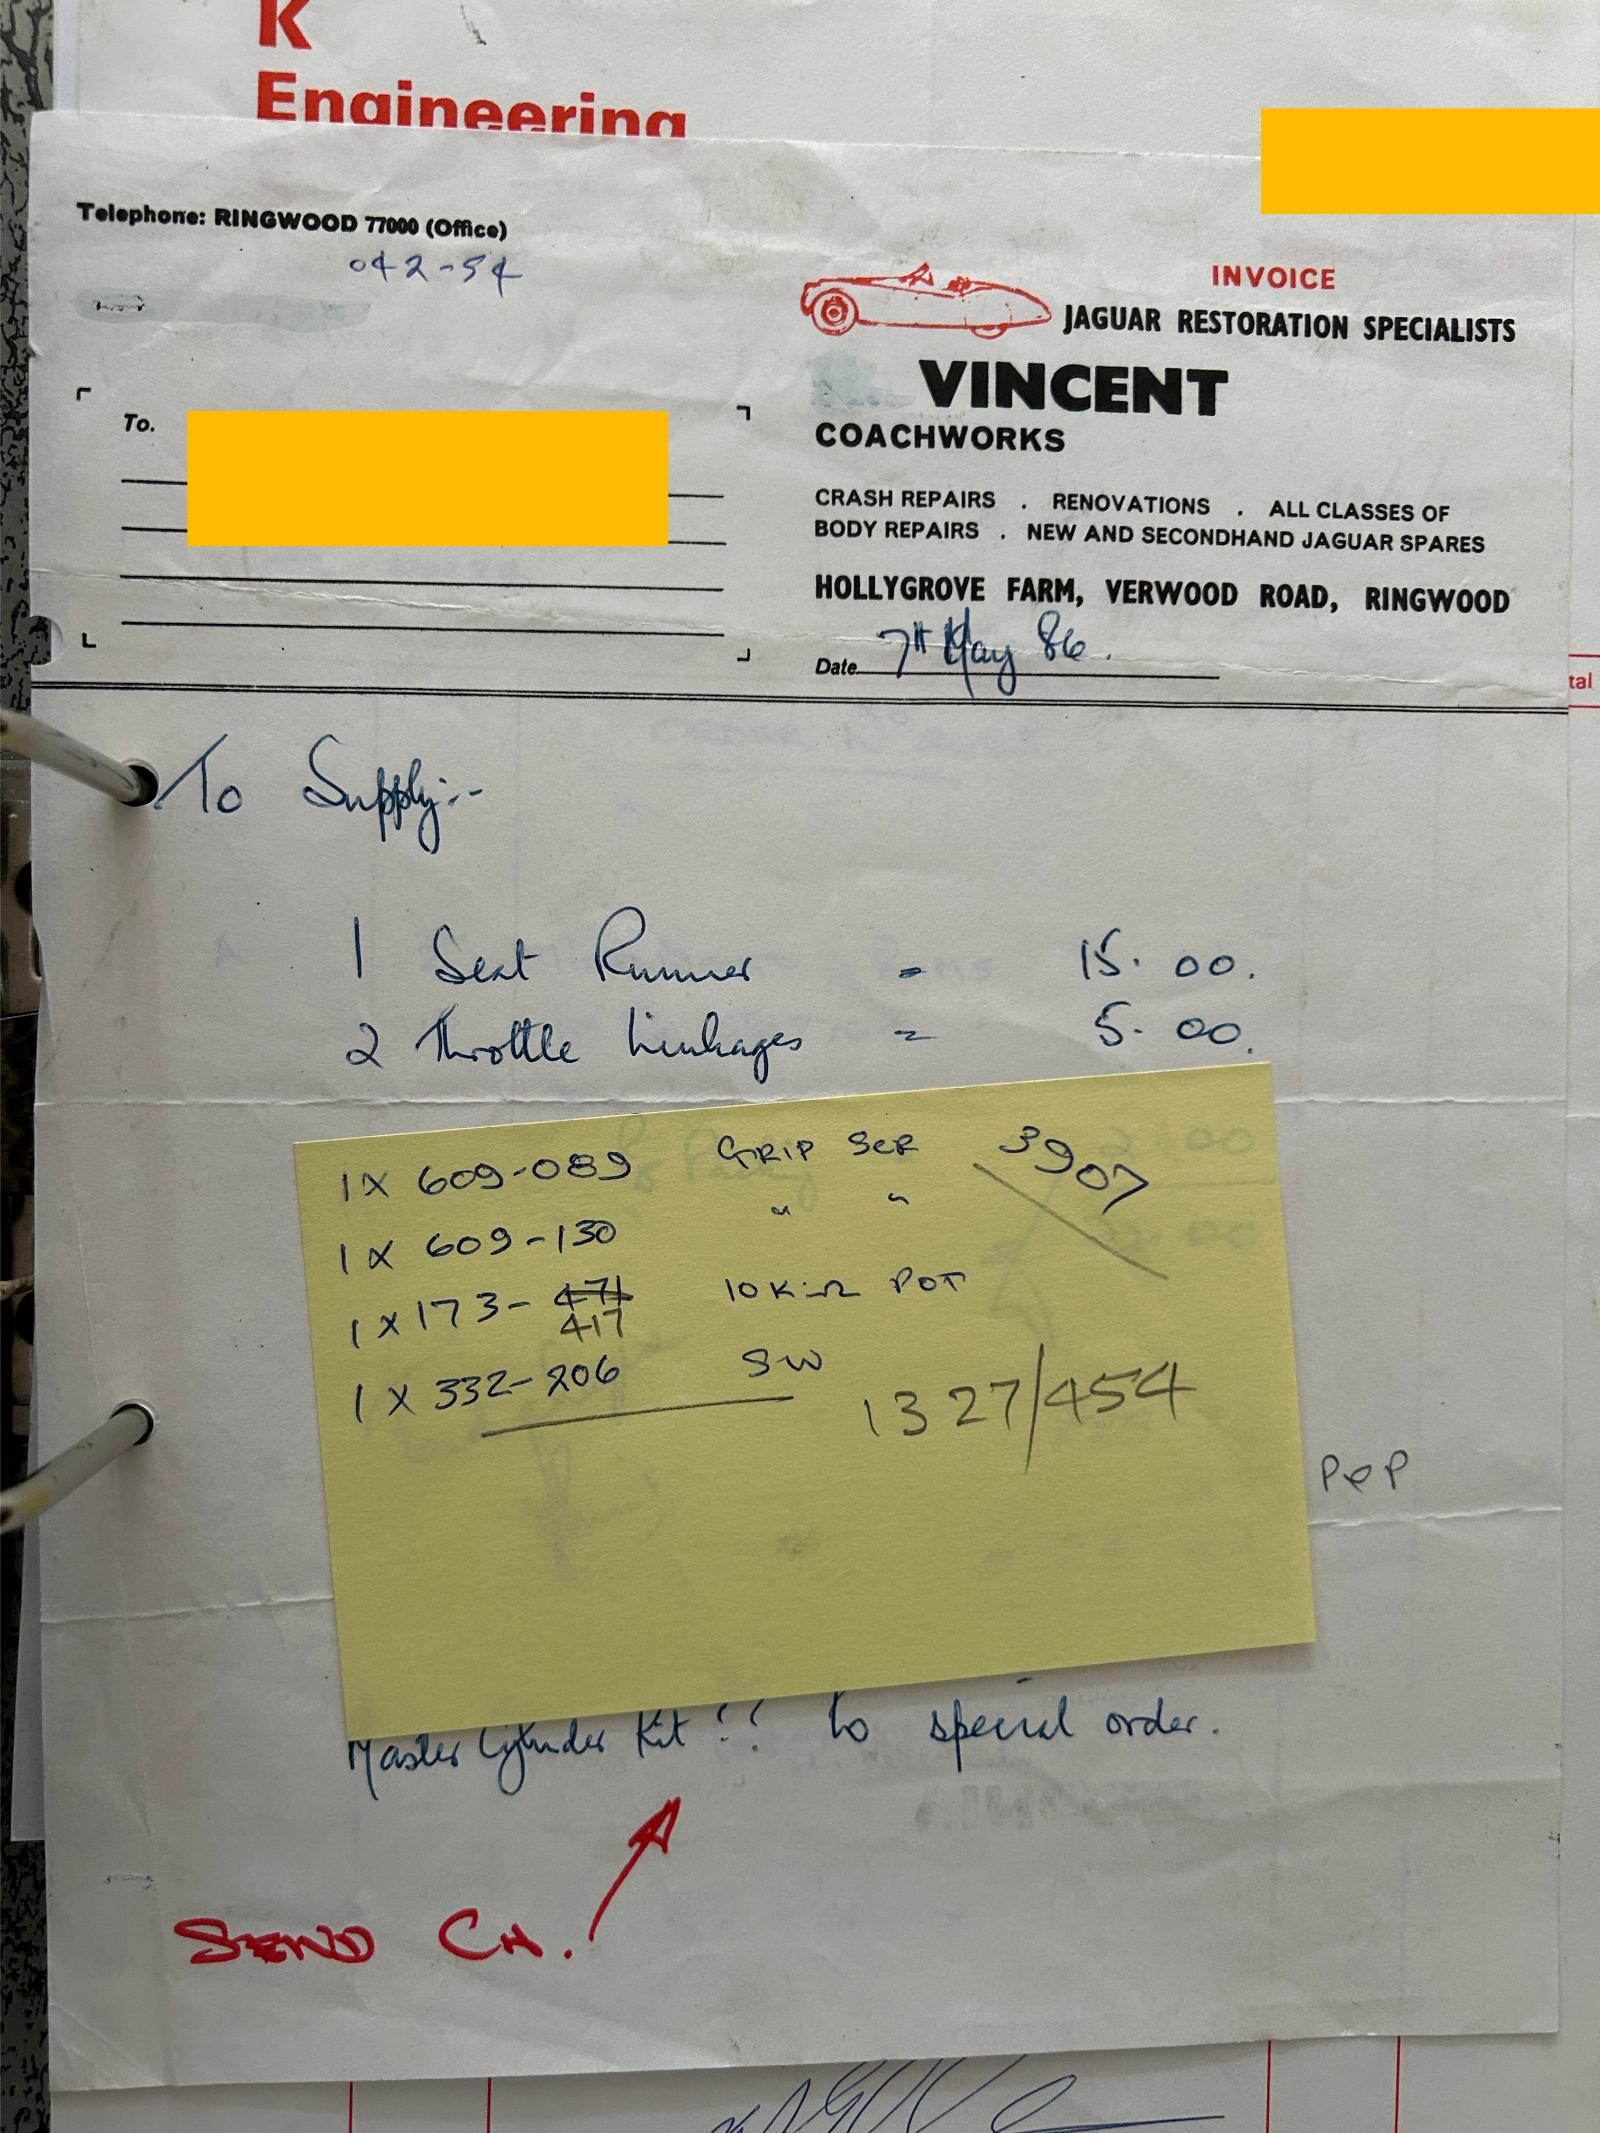 K
Engineering
Telephone: RINGWOOD 77000 (Office)
042-54
INVOICE
JAGUAR RESTORATION SPECIALISTS
VINCENT
COACHWORKS
To.
CRASH REPAIRS . RENOVATIONS . ALL CLASSES OF
BODY REPAIRS . NEW AND SECONDHAND JAGUAR SPARES
HOLLYGROVE FARM, VERWOOD ROAD, RINGWOOD
Date 7th May 86.
tal
To Supply:-
1 Seat Runner = 15.00.
2 Throttle Linkages = 5.00.
1 X 609-089 GRIP SCR 3907
1 X 609-130 " "
1 X 173-471 10K Ω POT
417
1 X 332-206 SW
1327/454
P&P
Master Cylinder Kit!! to special order.
SEND CH.